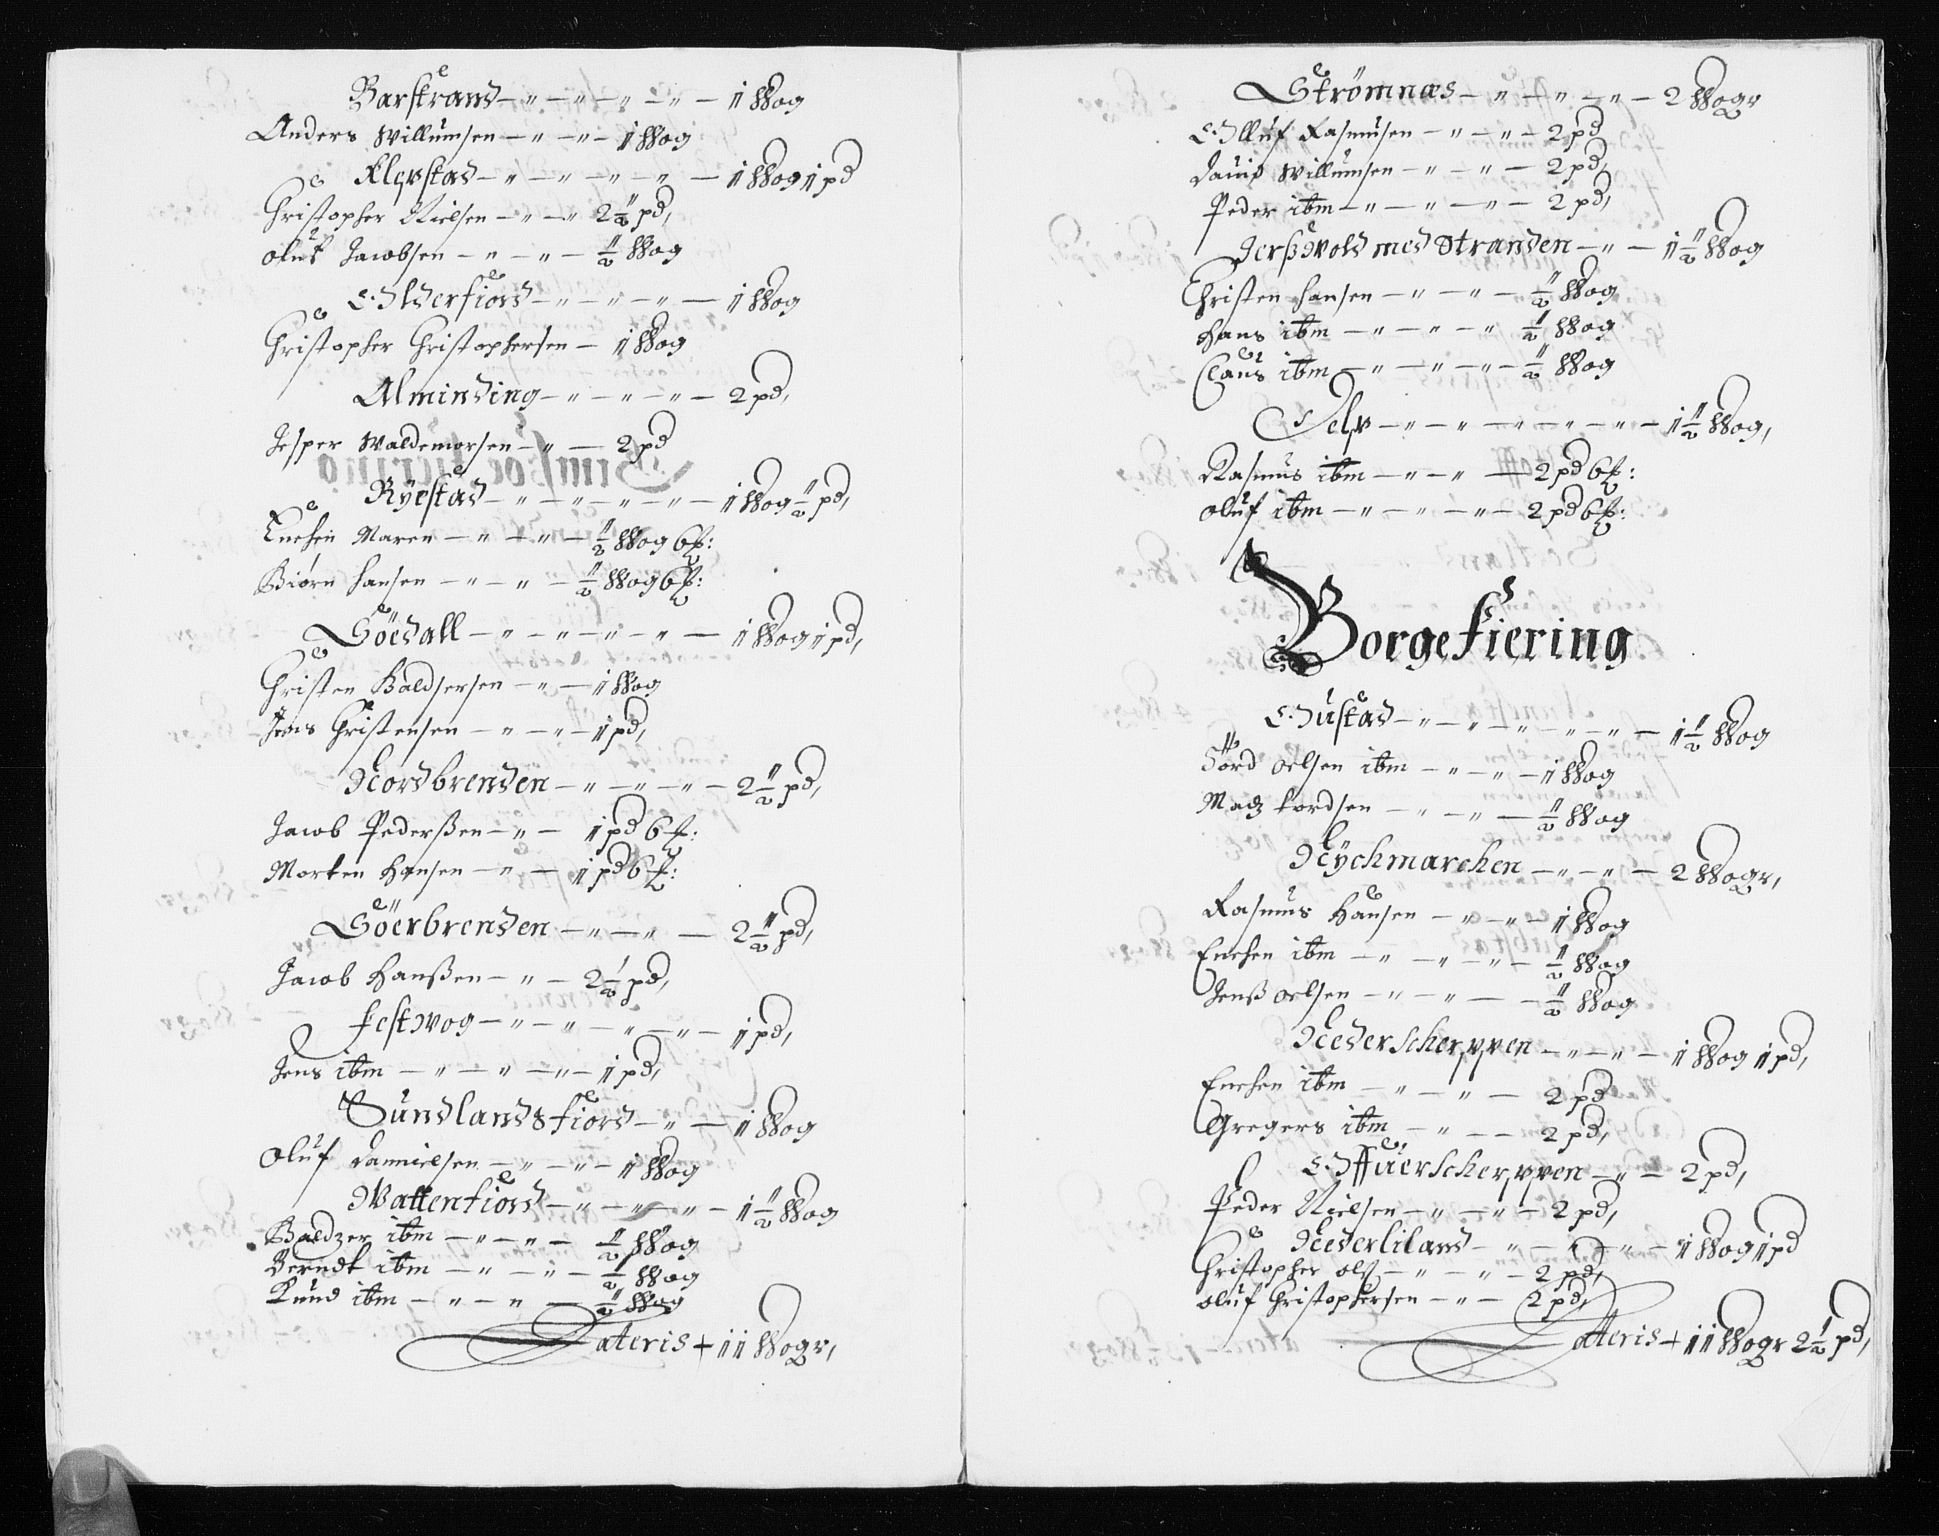 Barstrand – " – " – " – " – 1 Wog
Anders Willumsen – " – " – 1 Wog
Klepstad – " – " – " – " – 1 Wog 1 pd
Christopher Nielsen – " – " 2½ pd,
Oluf Jacobsen – " – " – ½ Wog
Olderfiord – " – " – " – 1 Wog
Christopher Christophersen – 1 Wog
Alminding – " – " – " – 2 pd,
Jesper Waldemorsen – " – 2 pd
Ryestad – " – " – " – " – 1 Wog ½ pd,
Enchen Maren – " – " – ½ Wog 6 ℔:
Biørn Hansen – " – " – ½ Wog 6 ℔:
Söedall – " – " – " – " – 1 Wog 1 pd,
Christen Baldsersen – " – 1 Wog
Jens Christensen – " – " – 1 pd,
Nordbrenden – " – " – " – 2½ pd,
Jacob Pederßen – " – 1 pd 6 ℔:
Morten Hansen – " – 1 pd 6 ℔:
Söerbrenden – " – " – 2½ pd,
Jacob Hanßen – " – " – 2½ pd,
Festwog – " – " – " – " – 1 pd,
Jens ibm – " – " – " – 1 pd,
Sundlandsfiord – " – 1 Wog
Oluf Dannielsen – " – " – 1 Wog
Watterfiord – " – " – " – 1½ Wog
Baldzer ibm – " – " – ½ Wog
Berndt ibm – " – " – ½ Wog
Knud ibm – " – " – ½ Wog
Lateris + 11 Wogr,
Strømnæs – " – " – " – 2 Wogr
Olluf Rasmusen – " – " – 2 pd
David Willumsen – " – " – 2 pd,
Peder ibm – " – " – " – 2 pd,
Jerßwold med Stranden – " – 1½ Wog
Christen Hansen – " – " – ½ Wog
Hans ibm – " – " – " ½ Wog
Claus ibm – " – " – " – ½ Wog
Delp – " – " – " – " – " – 1½ Wog,
Rasmus ibm – " – " – 2 pd 6 ℔:
Oluf ibm – " – " – " – 2 pd 6 ℔:
Borge Fiering
Oustad – " – " – " – " – 1½ Wog
Tord Oelsen ibm – " – " – 1 Wog
Madz Tordsen – " – " – ½ Wog
Nychmarchen – " – " – 2 Wogr,
Rasmus Hansen – " – " – 1 Wog
Enchen ibm – " – " – " – ½ Wog
Jenß Oelsen – " – " – ½ Wog
Nederscherppen – " – " – 1 Wog 1 pd,
Enchen ibm – " – " – 2 pd
Gregers ibm – " – – 2 pd,
Offuerscherppen – " – 2 pd,
Peder Nielsen – " – " – 2 pd,
Nederliland – " – " – " – 1 Wog 1 pd
Christopher Olß – " – " – 2 pd,
Oluf Christophersen – " – 2 pd,
Lateris + 11 Wogr 2½ pd,